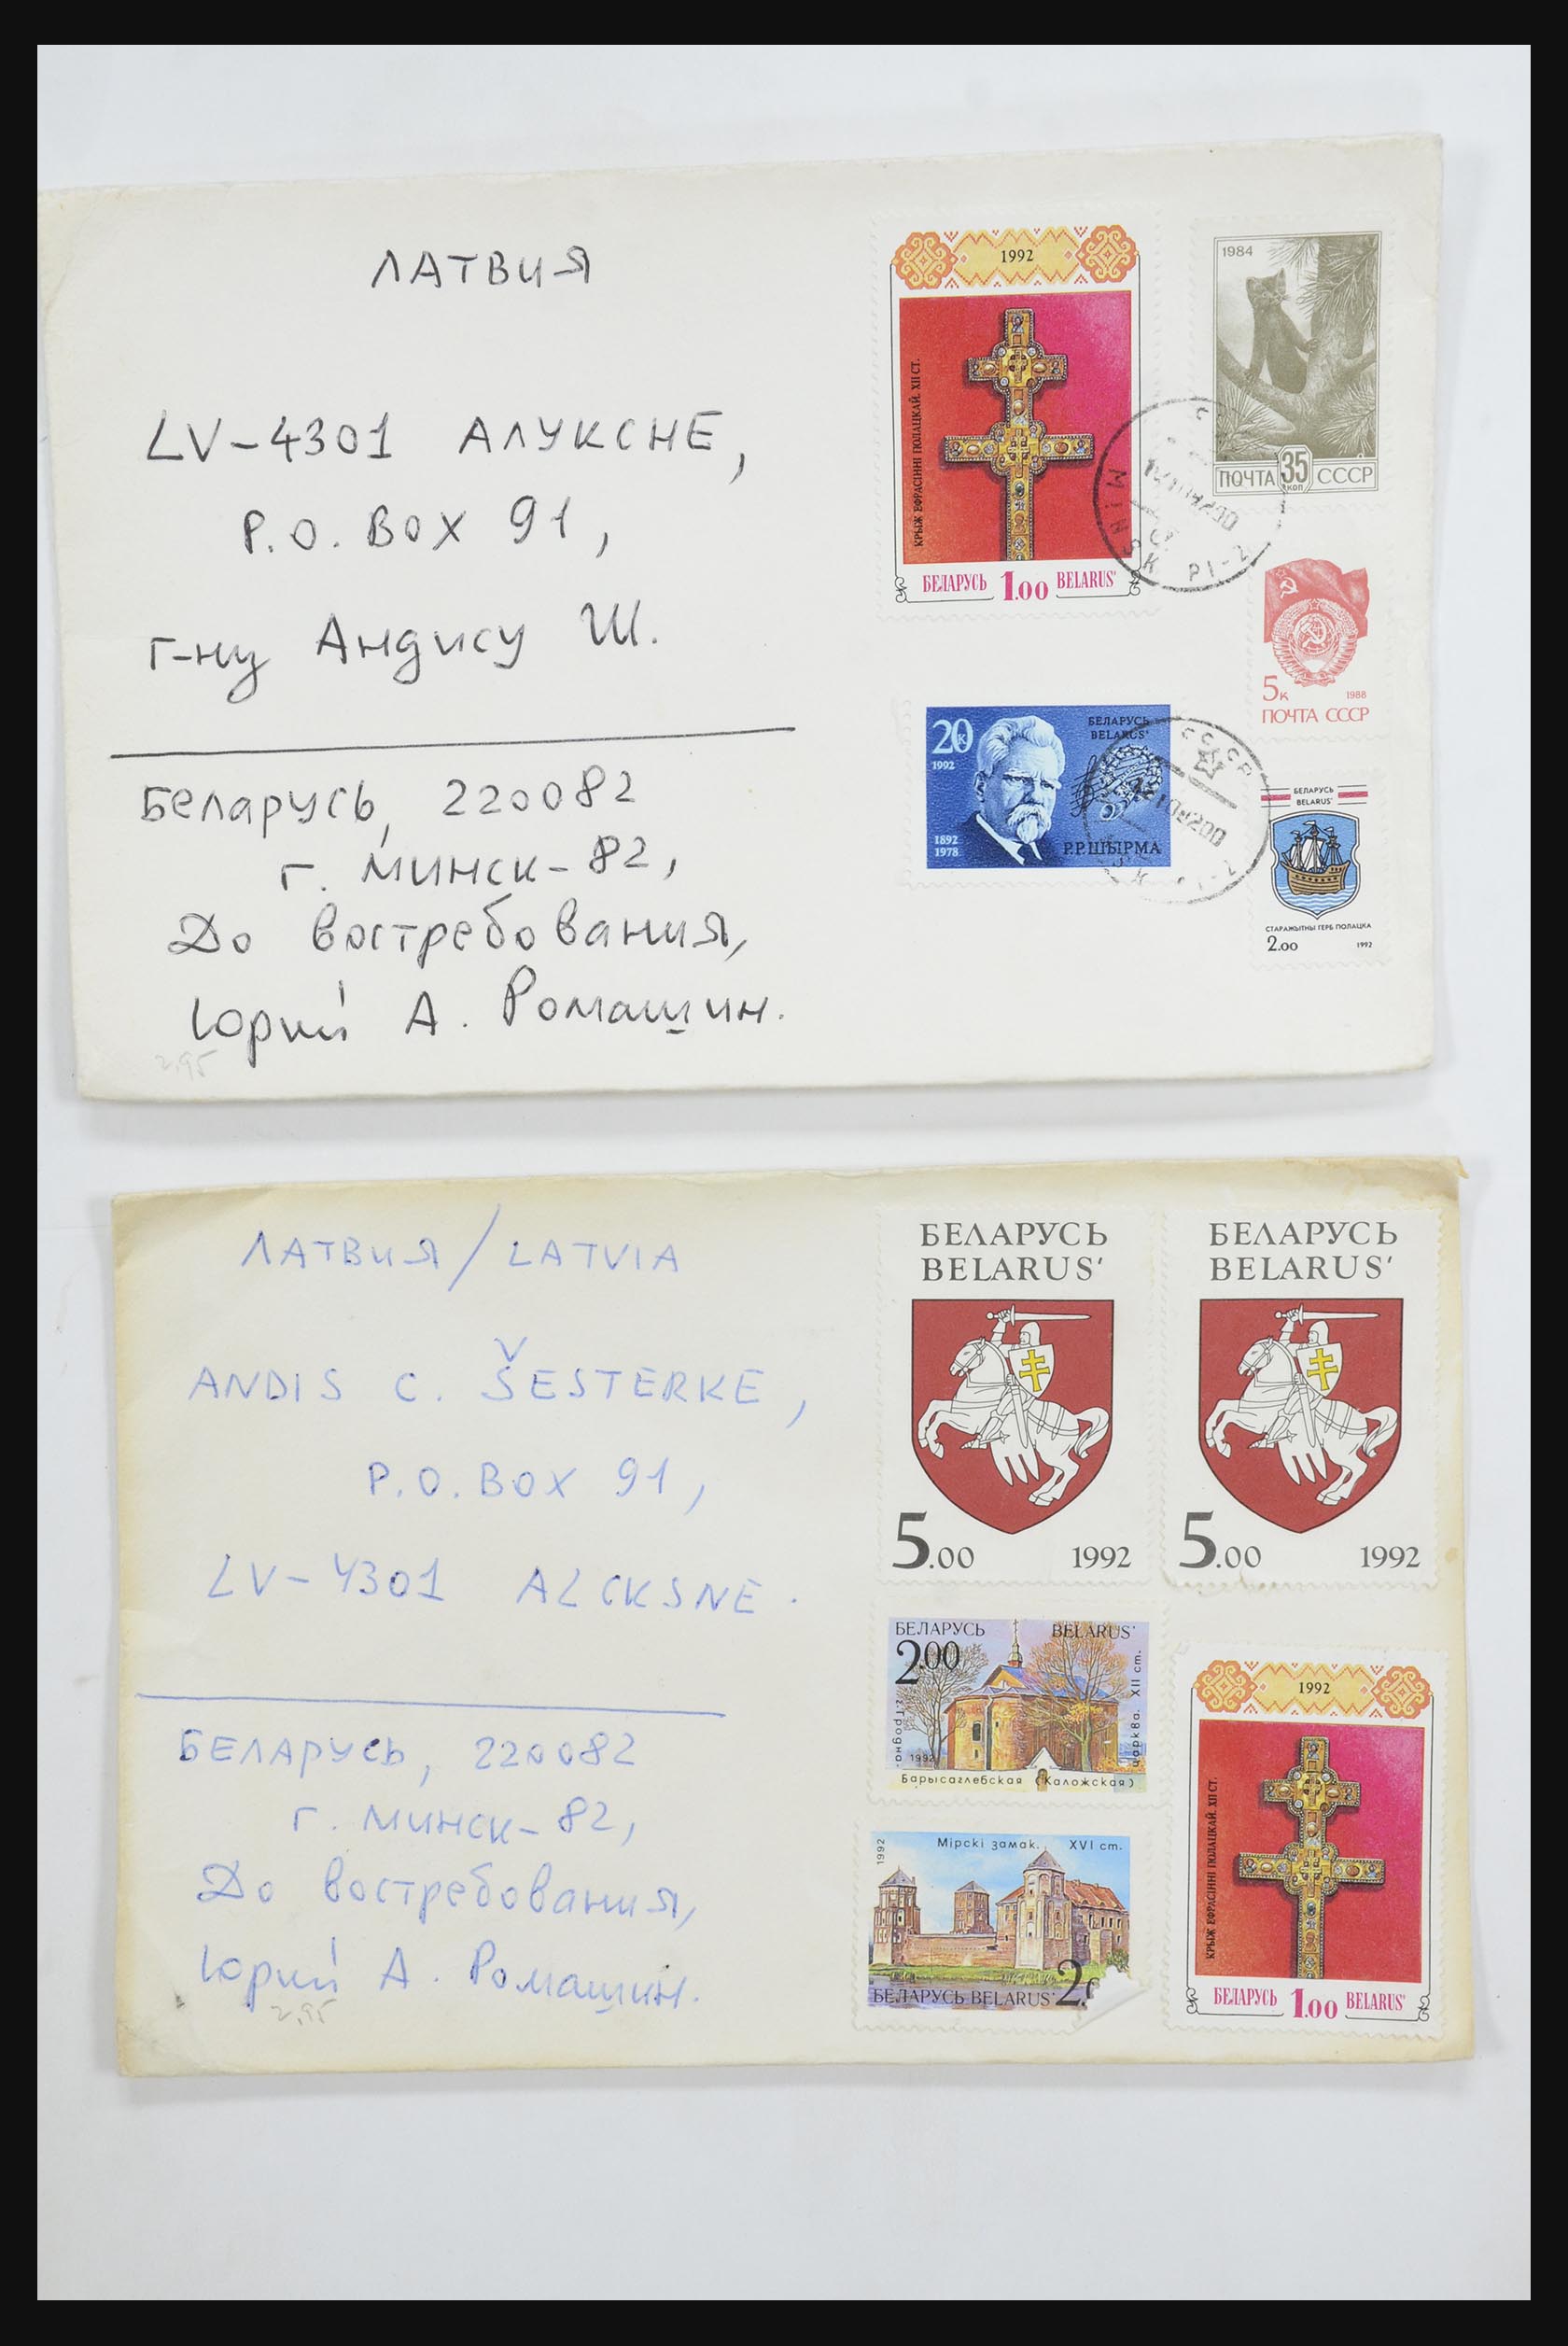 ЛАТВИЯ
LV-4301 АЛУКСНЕ,
P.O. BOX 91,
г-ну Андису Ш.
Беларусь, 220082
г. Минск-82,
До востребования,
Юрий А. Ромащин.
2,95
1992
КРЫЖ ЕФРАСІННІ ПОЛАЦКАЙ. XII СТ.
БЕЛАРУСЬ 1.00 BELARUS'
1984
ПОЧТА 35 КОП СССР
MINSK PI-2
5к 1988
ПОЧТА СССР
20 К
1992
БЕЛАРУСЬ
BELARUS'
1892
1978
Р.Р.ШЫРМА
СССР
БЕЛАРУСЬ
BELARUS'
СТАРАЖЫТНЫ ГЕРБ ПОЛАЦКА
2.00 1992
ЛАТВИЯ / LATVIA
ANDIS C. ŠESTERKE,
P.O. BOX 91,
LV-4301 ALCKSNE.
БЕЛАРУСЬ, 220082
г. Минск-82,
До востребования,
Юрий А. Ромащин.
2,95
БЕЛАРУСЬ
BELARUS'
5.00 1992
БЕЛАРУСЬ
BELARUS'
5.00 1992
БЕЛАРУСЬ BELARUS'
2.00
г.Гродна.
1992
царква. XII ст.
Барысаглебская (Каложская)
1992
Мірскі замак. XVI ст.
БЕЛАРУСЬ BELARUS' 2.
1992
КРЫЖ ЕФРАСІННІ ПОЛАЦКАЙ. XII СТ.
БЕЛАРУСЬ 1.00 BELARUS'